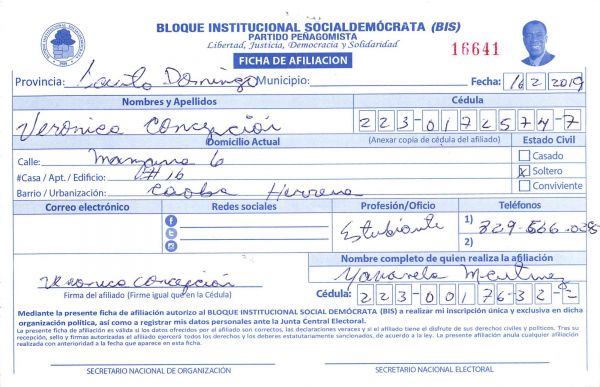 BLOQUE INSTITUCIONAL SOCIALDEMÓCRATA (BIS)
PARTIDO PEÑAGOMISTA
Libertad, Justicia, Democracia y Solidaridad
16641
FICHA DE AFILIACION
Provincia: Santo Domingo Municipio: Fecha: 16/2/2019
Nombres y Apellidos Cédula
Veronica Concepción 223-0172574-7
Domicilio Actual (Anexar copia de cédula del afiliado) Estado Civil
Calle: Manzana 6 Casado
#Casa / Apt. / Edificio: #16 x Soltero
Barrio / Urbanización: Caoba Herrera Conviviente
Correo electrónico Redes sociales Profesión/Oficio Teléfonos
Estudiante 1) 829-566-
2)
Nombre completo de quien realiza la afiliación
Veronica Concepción Martinez
Firma del afiliado (Firme igual que en la Cédula) Cédula: 223-0017632-
Mediante la presente ficha de afiliación autorizo al BLOQUE INSTITUCIONAL SOCIAL DEMÓCRATA (BIS) a realizar mi inscripción única y exclusiva en dicha
organización política, así como a registrar mis datos personales ante la Junta Central Electoral.
La presente ficha de afiliación es válida si los datos ofrecidos por el afiliado son correctos, las declaraciones veraces y si el afiliado tiene el disfrute de sus derechos civiles y políticos. Tras su
recepción, sello y firmas autorizadas el afiliado ejercerá todos los derechos y los deberes estatutariamente sancionados, de acuerdo a la ley. La presente afiliación anula cualquier afiliación
realizada con anterioridad a la fecha que aparece en esta ficha.
SECRETARIO NACIONAL DE ORGANIZACIÓN SECRETARIO NACIONAL ELECTORAL